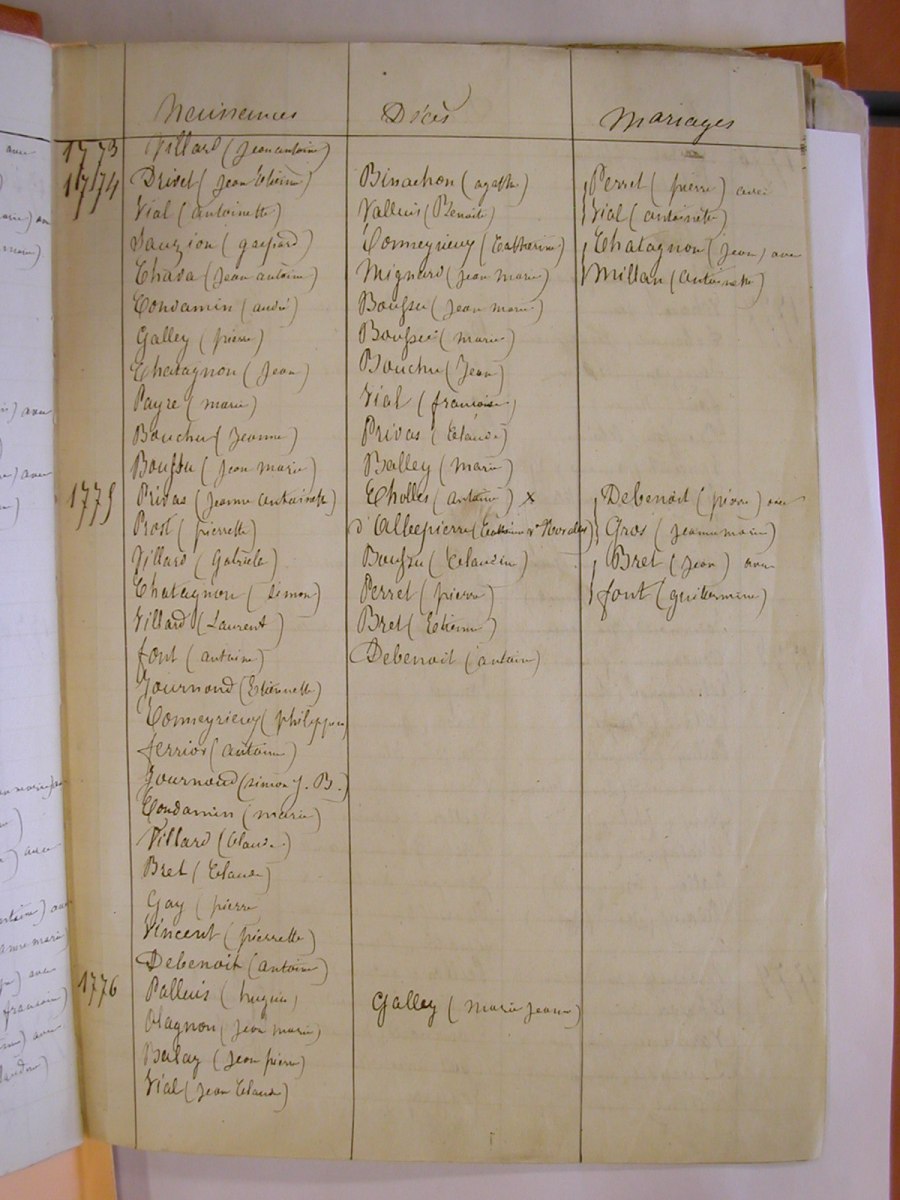 Naissances Décès Mariages
1773 Villard (Jean antoine)
1774 Drivet (Jean Etienne) Binachon (agathe) Perret (pierre) avec
Vial (antoinette) Valluis (Benoit) Vial (antoinette)
Sauzion (gaspard) Conneyrieux (Catherine) Chatagnon (Jean) avec
Chava (Jean antoine) Mignard (Jean Marie) Millan (Antoinette)
Condamin (andré) Boussu (Jean marie)
Galley (pierre) Boussu (marie)
Chatagnon (Jean) Bouchu (Jean)
Payre (marie) Vial (francoise)
Bouchu (Jeanne) Privas (Claude)
Boussu (Jean marie) Balley (marie)
1775 Privas (Jeanne antoinette) Cholles (antoine) x Debenoit (pierre) avec
Prost (pierrette) d'Albepierre Gros (Jeanne marie)
Villard (Gabriele) Boussu (Claudine) Bret (Jean) avec
Chatagnon (Simon) Perret (pierre) font (guillermine)
Villard (Laurent) Bret (Etienne)
font (antoine) Debenoit (antoine)
Journoud (Etiennette)
Conneyrieux (philippe)
ferrior (antoine)
Journoud (simon J. B.)
Condamin (marie)
Villard (Claude)
Bret (Claude)
Gay (pierre
Vincent (pierrette)
Debenoit (antoine)
1776 Palluis (hugues) Galley (Marie Jeanne)
Olagnon (Jean marie)
Balay (Jean pierre)
Vial (Jean Claude)